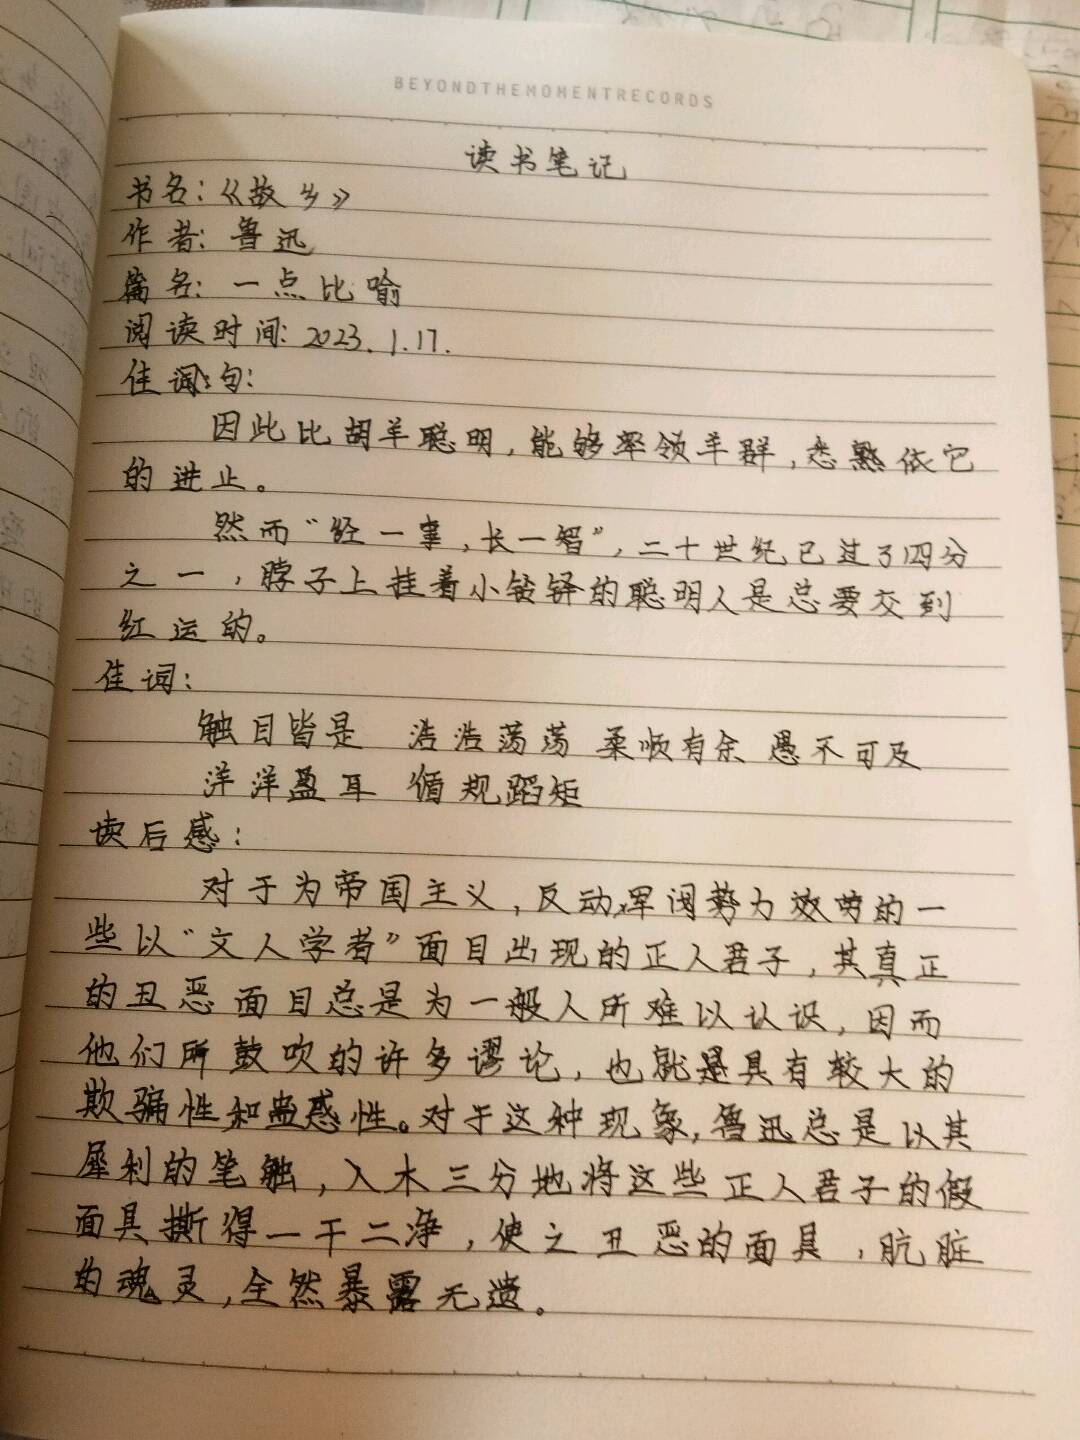 BEYONDTHEMOMENTRECORDS
读书笔记
书名：《故乡》
作者：鲁迅
篇名：一点比喻
阅读时间：2023.1.17.
佳词句：
因此比胡羊聪明，能够率领羊群，悉熟依它
的进止。
然而“经一事，长一智”，二十世纪已过了四分
之一，脖子上挂着小铃铎的聪明人是总要交到
红运的。
佳词：
触目皆是 浩浩荡荡 柔顺有余 愚不可及
洋洋盈耳 循规蹈矩
读后感：
对于为帝国主义，反动军阀势力效劳的一
些以“文人学者”面目出现的正人君子，其真正
的丑恶面目总是为一般人所难以认识，因而
他们所鼓吹的许多谬论，也就是具有较大的
欺骗性和蛊惑性。对于这种现象，鲁迅总是以其
犀利的笔触，入木三分地将这些正人君子的假
面具撕得一干二净，使之丑恶的面具，肮脏
的魂灵，全然暴露无遗。